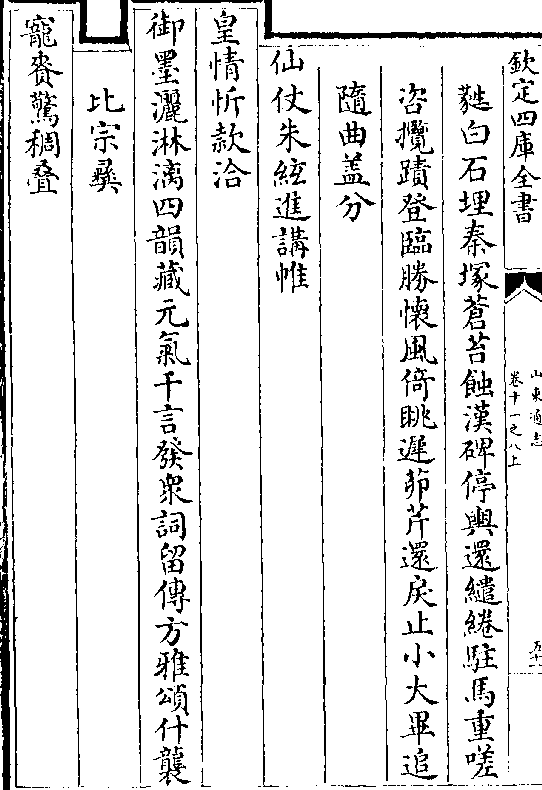 欽定四庫全書
山東通志
卷十一之八上
五十一
甦白石埋秦塚蒼苔蝕漢碑停輿還繾綣駐馬重嗟
咨攬蹟登臨勝懷風倚眺遲茆芹還戾止小大畢追
隨曲盖分
仙仗朱絃進講帷
皇情忻款洽
御墨灑淋漓四韻藏元氣千言發衆詞留傳方雅頌什襲
比宗彞
寵賚驚稠叠